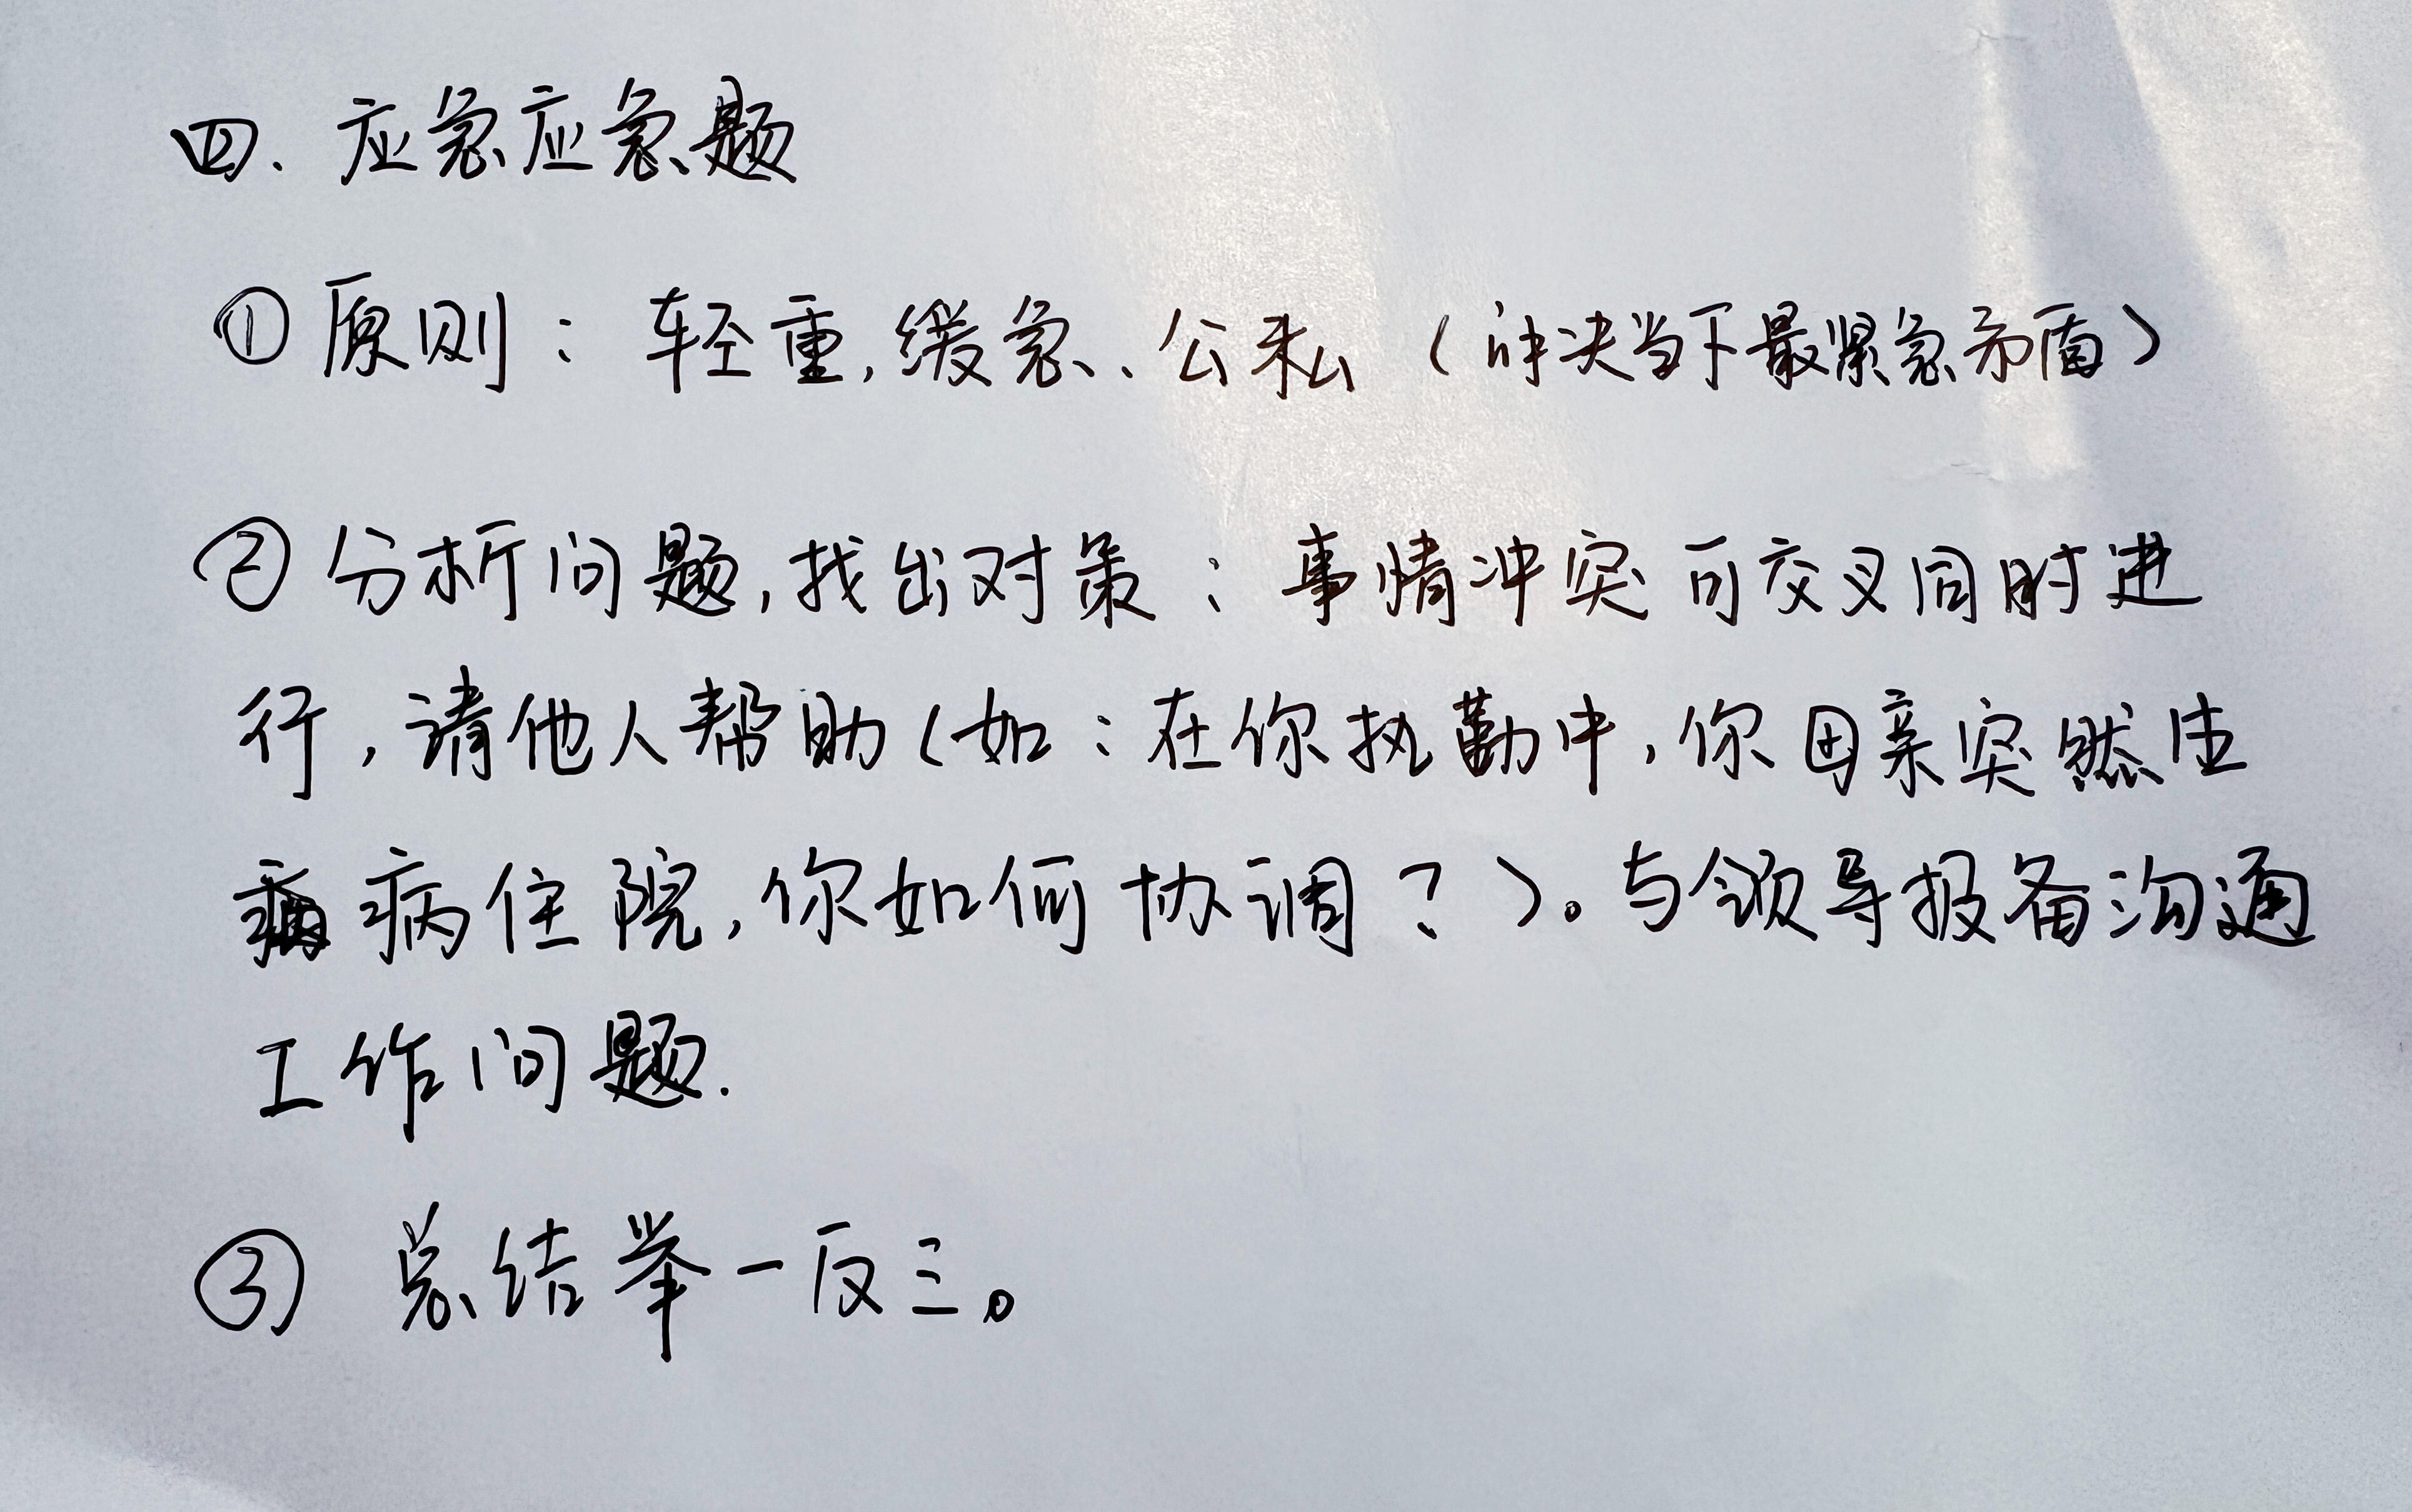 四. 应急应急题
① 原则：轻重,缓急、公私（解决当下最紧急矛盾）
② 分析问题,找出对策：事情冲突可交叉同时进
行,请他人帮助(如：在你执勤中,你母亲突然生
病住院,你如何协调？)。与领导报备沟通
工作问题.
③ 总结举一反三。